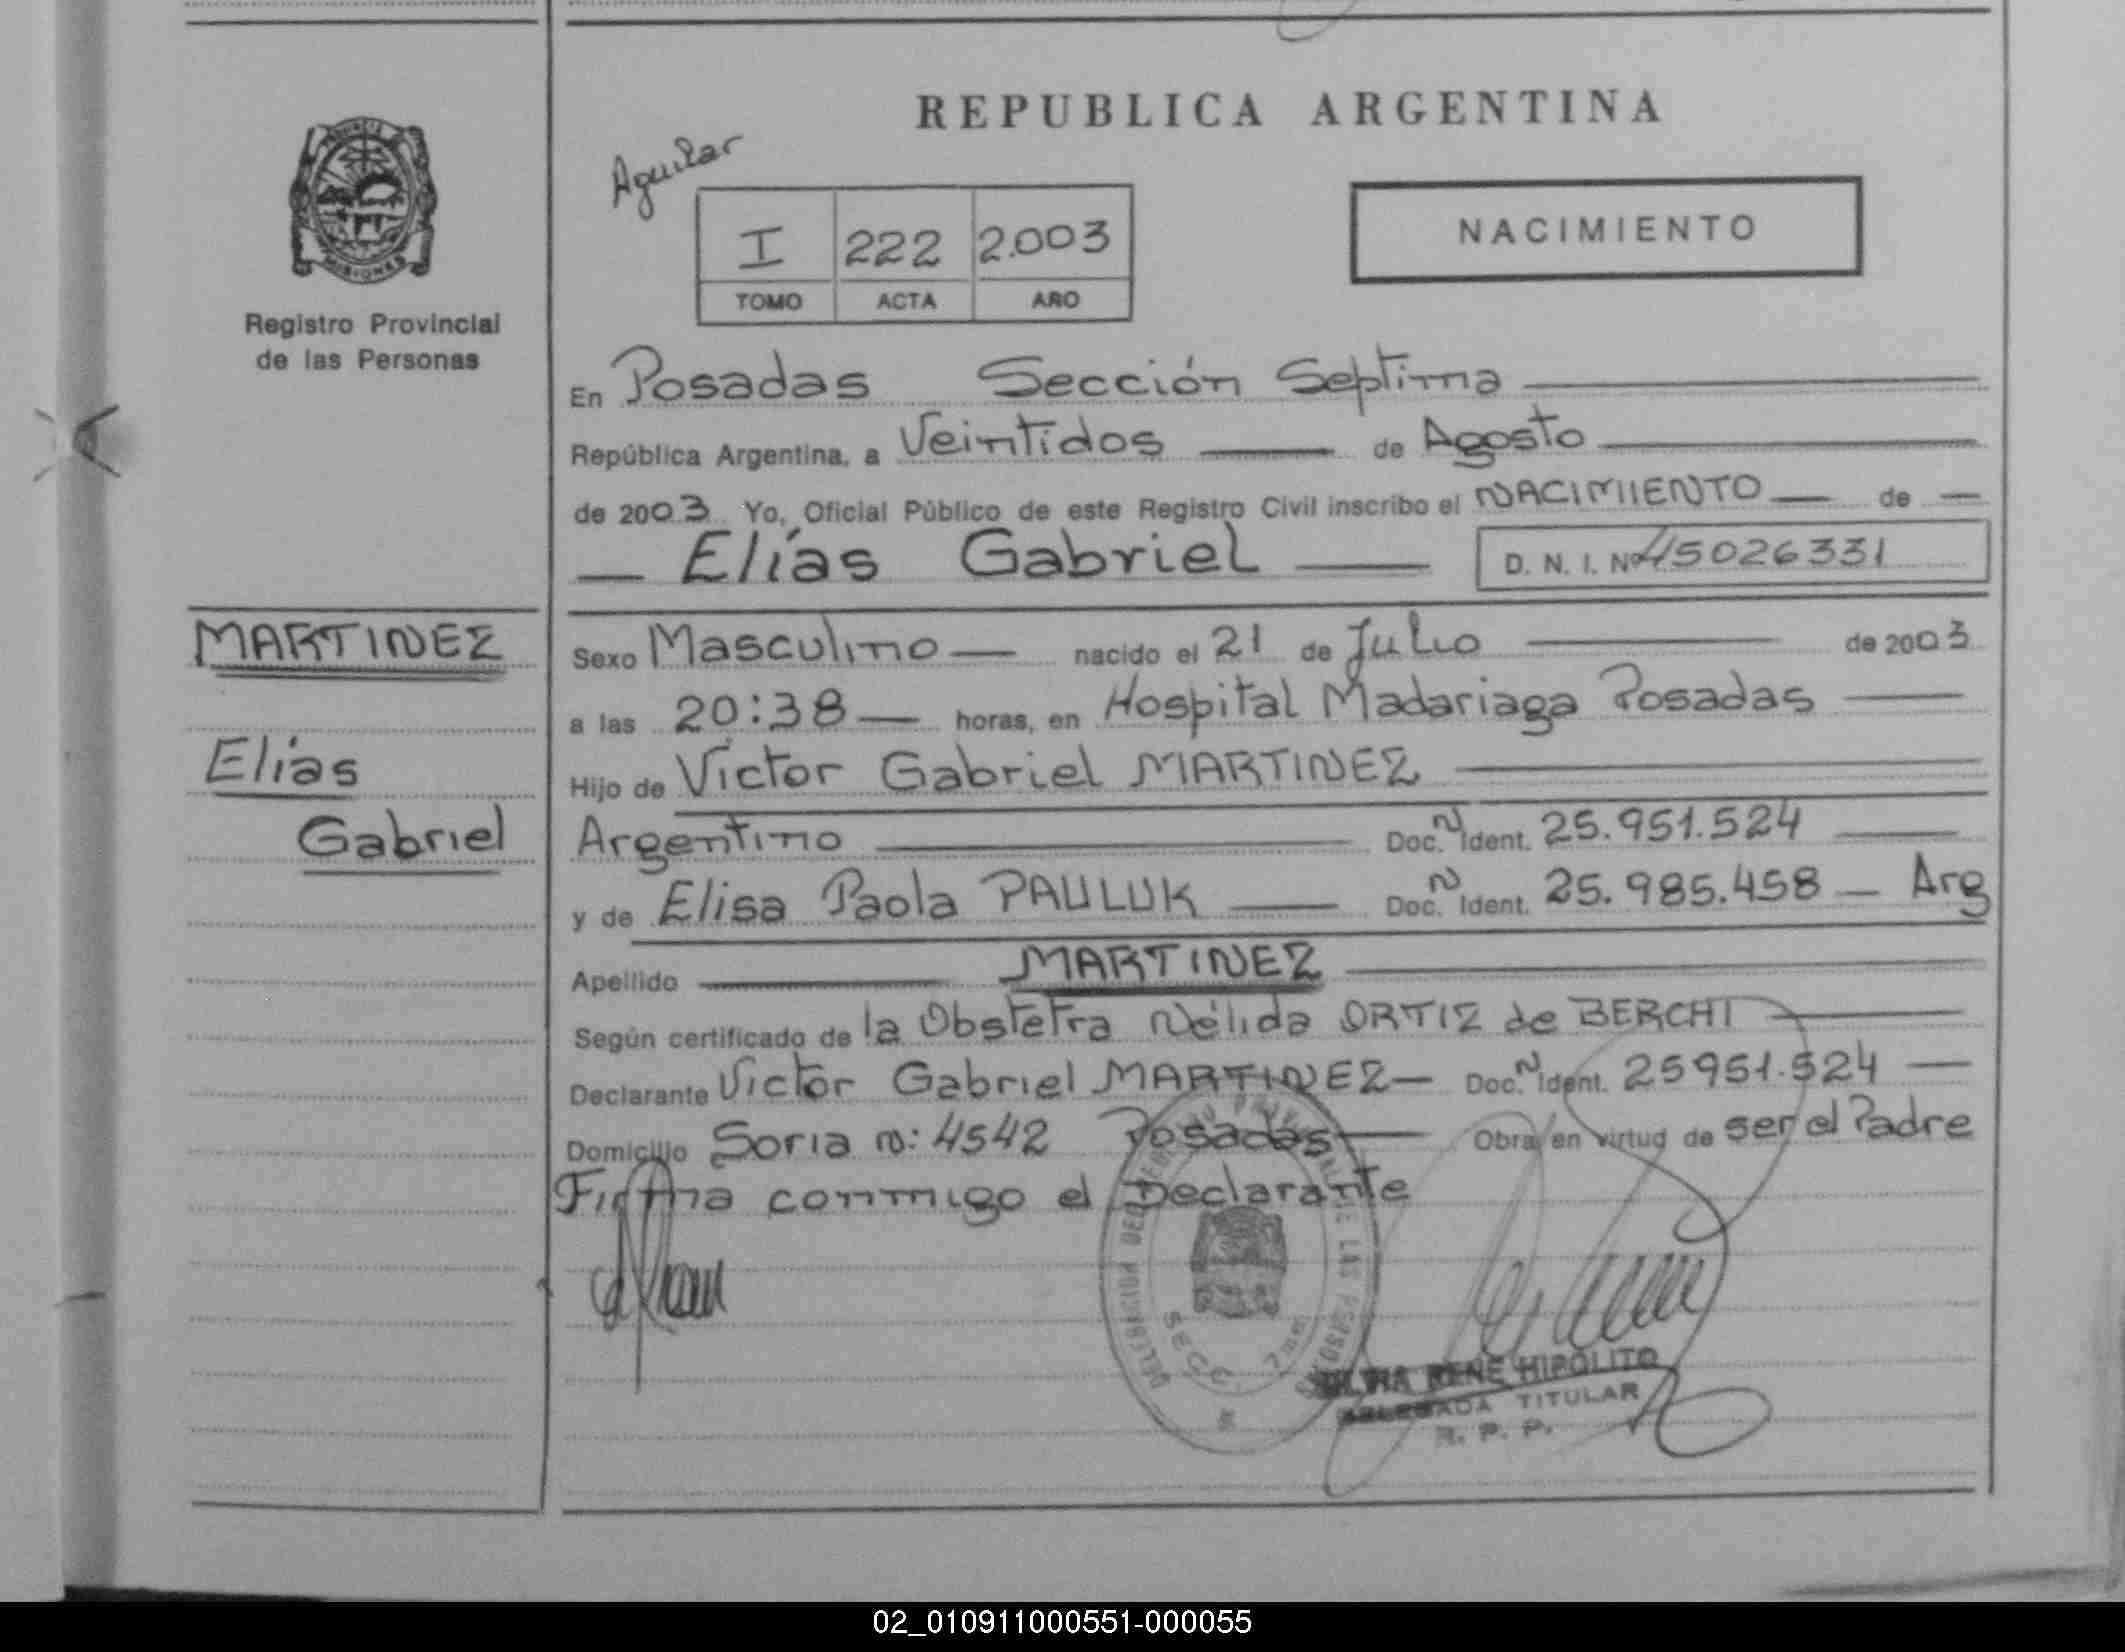 REPUBLICA ARGENTINA
Aguilar
I 222 2.003
TOMO ACTA AÑO
NACIMIENTO
MISIONES
Registro Provincial
de las Personas
En Posadas Sección Septima
República Argentina, a Veintidos de Agosto
de 2003 Yo, Oficial Público de este Registro Civil inscribo el NACIMIENTO de
Elías Gabriel D. N. I. Nº 45026331
MARTINEZ
Elías
Gabriel
Sexo Masculino nacido el 21 de Julio de 2003
a las 20:38 horas, en Hospital Madariaga Posadas
Hijo de Víctor Gabriel MARTINEZ
Argentino Doc. N Ident. 25.951.524
y de Elisa Paola PAULUK Doc. N Ident. 25.985.458 Arg
Apellido MARTINEZ
Según certificado de la Obstetra Nélida ORTIZ de BERCHI
Declarante Victor Gabriel MARTINEZ Doc. N Ident. 25951.524
Domicilio Soria n: 4542 Posadas Obra en virtud de ser el Padre
Firma conmigo el Declarante
SECC. 7
RENE HIPOLITO
DELEGADA TITULAR
R. P. P.
02_010911000551-000055